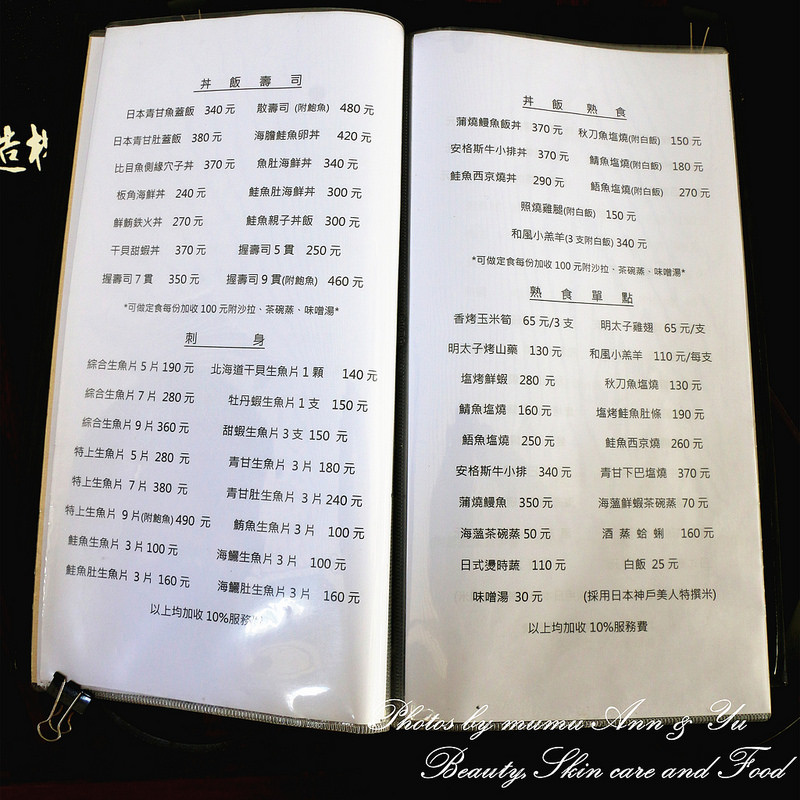 丼飯壽司
日本青甘魚蓋飯 340元 散壽司(附鮑魚) 480元
日本青甘肚蓋飯 380元 海膽鮭魚卵丼 420元
比目魚側緣穴子丼 370元 魚肚海鮮丼 340元
板角海鮮丼 240元 鮭魚肚海鮮丼 300元
鮮鮪鉄火丼 270元 鮭魚親子丼飯 300元
干貝甜蝦丼 370元 握壽司5貫 250元
握壽司7貫 350元 握壽司9貫(附鮑魚) 460元
*可做定食每份加收100元附沙拉、茶碗蒸、味噌湯*
刺身
綜合生魚片5片190元 北海道干貝生魚片1顆 140元
綜合生魚片7片 280元 牡丹蝦生魚片1支 150元
綜合生魚片9片360元 甜蝦生魚片3支 150元
特上生魚片 5片 280元 青甘生魚片 3片 180元
特上生魚片 7片 380元 青甘肚生魚片 3片240元
特上生魚片 9片(附鮑魚)490元 鮪魚生魚片3片 100元
鮭魚生魚片 3片100元 海鱺生魚片3片 100元
鮭魚肚生魚片 3片 160元 海鱺肚生魚片3片 160元
以上均加收10%服務
丼飯熟食
蒲燒鰻魚飯丼 370元 秋刀魚塩燒(附白飯) 150元
安格斯牛小排丼 370元 鯖魚塩燒(附白飯) 180元
鮭魚西京燒丼 290元 鯃魚塩燒(附白飯) 270元
照燒雞腿(附白飯) 150元
和風小羔羊(3支附白飯)340元
*可做定食每份加收100元附沙拉、茶碗蒸、味噌湯*
熟食單點
香烤玉米筍 65元/3支 明太子雞翅 65元/支
明太子烤山藥 130元 和風小羔羊 110元/每支
塩烤鮮蝦 280元 秋刀魚塩燒 130元
鯖魚塩燒 160元 塩烤鮭魚肚條 190元
鯃魚塩燒 250元 鮭魚西京燒 260元
安格斯牛小排 340元 青甘下巴塩燒 370元
蒲燒鰻魚 350元 海薀鮮蝦茶碗蒸 70元
海薀茶碗蒸50元 酒蒸蛤蜊 160元
日式燙時蔬 110元 白飯 25元
味噌湯 30元 (採用日本神戶美人特撰米)
以上均加收10%服務費
Photos by mumu Ann & Yu
Beauty, Skin care and Food